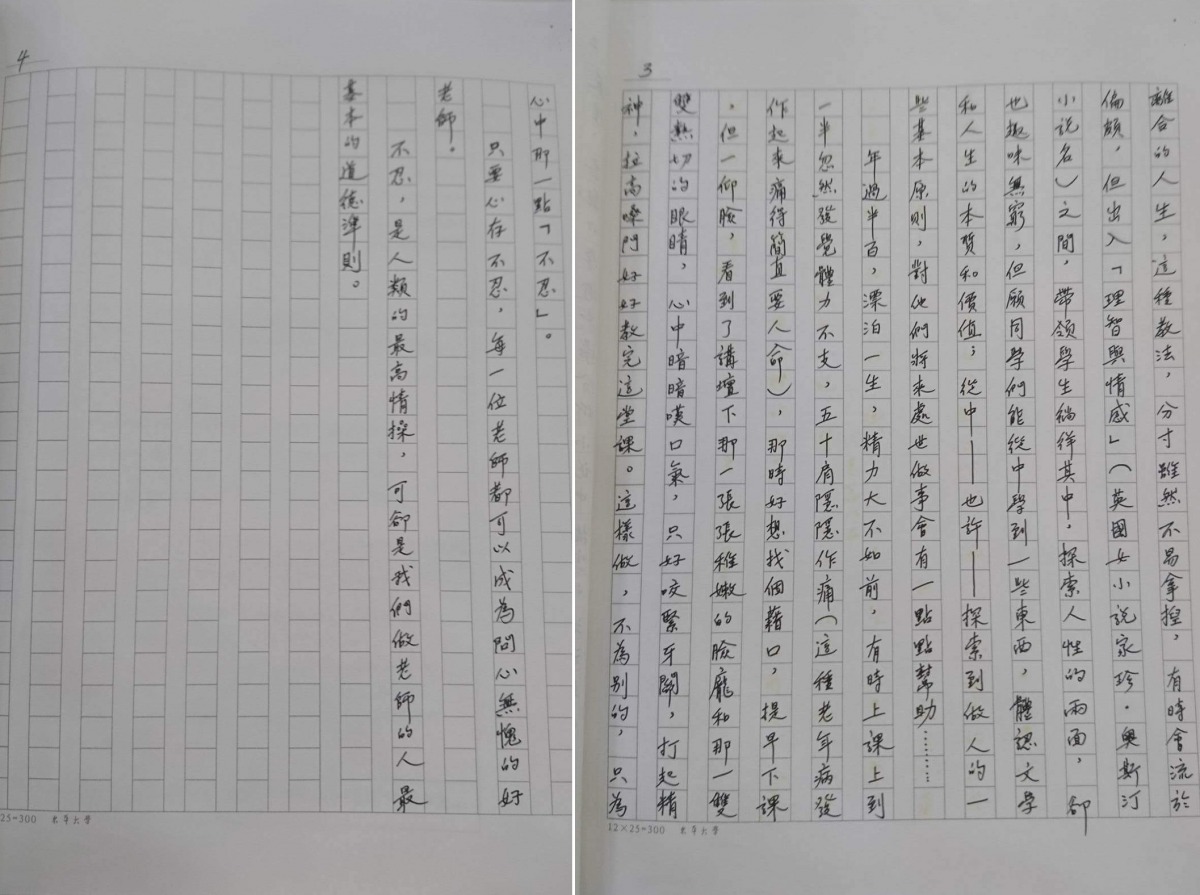 3
離合的人生，這種教法，分寸雖然不易拿捏，有時會流於
偏頗，但出入「理智與情感」（英國女小說家珍·奧斯汀
小說名）之間，帶領學生徜徉其中，探索人性的兩面，卻
也趣味無窮，但願同學們能從中學到一些東西，體認文學
和人生的本質和價值；從中——也許——探索到做人的一
些基本原則，對他們將來處世做事會有一點點幫助………
年過半百，漂泊一生，精力大不如前，有時上課上到
一半忽然發覺體力不支，五十肩隱隱作痛（這種老年病發
作起來痛得簡直要人命），那時好想找個藉口，提早下課
，但一仰臉，看到了講壇下那一張張稚嫩的臉龐和那一雙
雙熱切的眼睛，心中暗暗嘆口氣，只好咬緊牙關，打起精
神，拉高嗓門好好教完這堂課。這樣做，不為別的，只為
12×25=300 東華大學
4
心中那一點「不忍」。
只要心存不忍，每一位老師都可以成為問心無愧的好
老師。
不忍，是人類的最高情操，可卻是我們做老師的人最
基本的道德準則。
25=300 東華大學